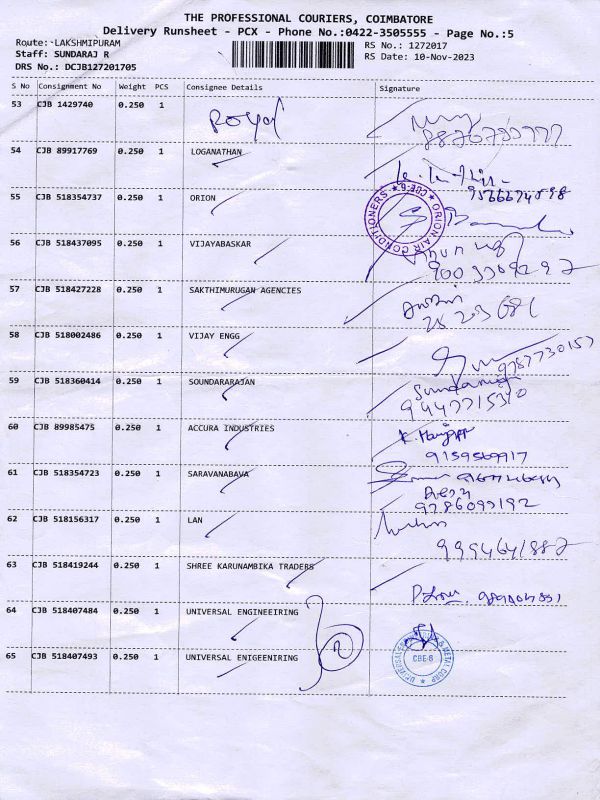 THE PROFESSIONAL COURIERS, COIMBATORE
Delivery Runsheet - PCX - Phone No.:0422-3505555 - Page No.:5
Route: LAKSHMIPURAM
RS No.: 1272017
Staff: SUNDARAJ R
RS Date: 10-Nov-2023
DRS No.: DCJB127201705
S No Consignment No Weight PCS Consignee Details Signature
53 CJB 1429740 0.250 1 Royal
54 CJB 89917769 0.250 1 LOGANATHAN
55 CJB 518354737 0.250 1 ORION
ORION AIR CONDITIONERS ★ CBE-6 ★
56 CJB 518437095 0.250 1 VIJAYABASKAR
57 CJB 518427228 0.250 1 SAKTHIMURUGAN AGENCIES
58 CJB 518002486 0.250 1 VIJAY ENGG
9787730157
59 CJB 518360414 0.250 1 SOUNDARARAJAN
60 CJB 89985475 0.250 1 ACCURA INDUSTRIES
9159569917
61 CJB 518354723 0.250 1 SARAVANABAVA
9786093192
62 CJB 518156317 0.250 1 LAN
9994641887
63 CJB 518419244 0.250 1 SHREE KARUNAMBIKA TRADERS
64 CJB 518407484 0.250 1 UNIVERSAL ENGINEEIRING
65 CJB 518407493 0.250 1 UNIVERSAL ENIGEENIRING
CBE-6